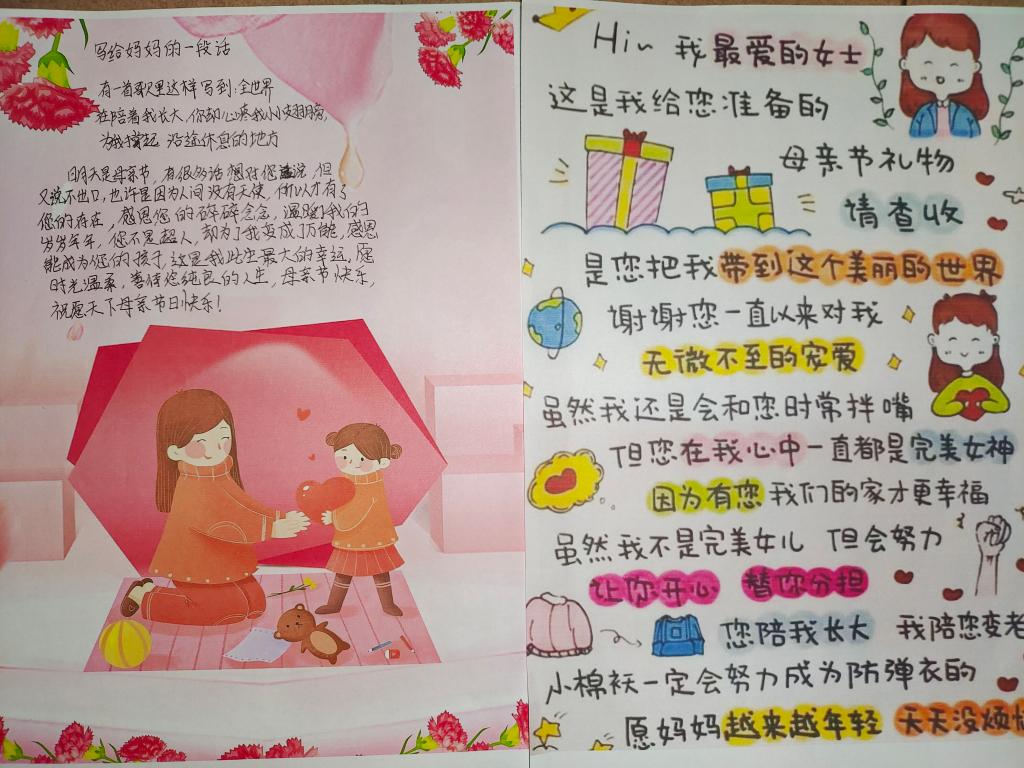 写给妈妈的一段话
有一首歌里这样写到:全世界
在陪着我长大,你却心疼我小翅膀,
为我撑起 沿途休息的地方
明天是母亲节,有很多话想对您说,但
又说不出口,也许是因为人间没有天使,所以才有了
您的存在,感恩您的碎碎念念,温暖了我的
岁岁年年,你不是超人,却为了我变成了万能,感恩
能成为你的孩子,这是我此生最大的幸运,愿
时光温柔,善待您纯良的人生,母亲节快乐,
祝愿天下母亲节日快乐!
Hi~ 我最爱的女士
这是我给您准备的
母亲节礼物
请查收
是您把我带到这个美丽的世界
谢谢您一直以来对我
无微不至的宠爱
虽然我还是会和您时常拌嘴
但您在我心中一直都是完美女神
因为有您我们的家才更幸福
虽然我不是完美女儿 但会努力
让你开心 替你分担
您陪我长大 我陪您变老
小棉袄一定会努力成为防弹衣的
愿妈妈越来越年轻 天天没烦恼